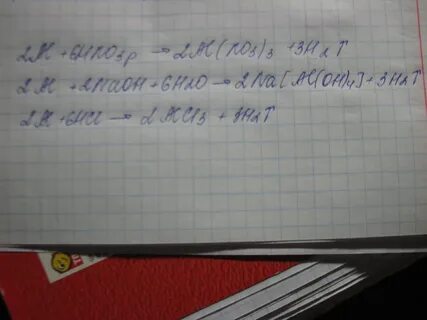 2Al + 6HNO3p → 2Al(NO3)3 + 3H2↑
2Al + 2NaOH + 6H2O → 2Na[Al(OH)4] + 3H2↑
2Al + 6HCl → 2AlCl3 + 3H2↑